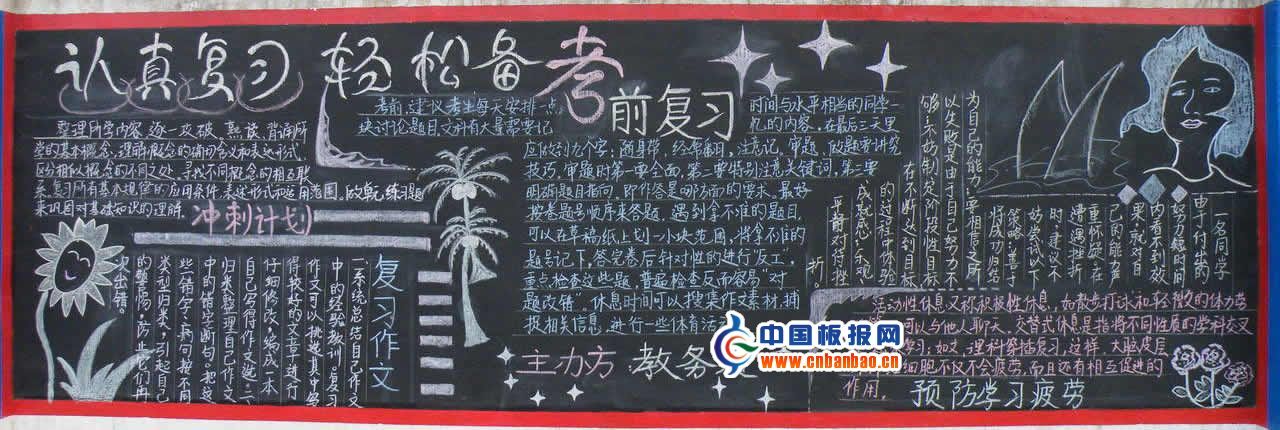 认真复习 轻松备考
整理所学内容,逐一攻破,熟读、背诵所
学的基本概念,理解概念的确切含义和表达形式,
区分相似概念的不同之处,寻找不同概念的相互联
系。复习所有基本规律的应用条件、表述形式和适用范围,做款、练习题
来巩固对基础知识的理解。
冲刺计划
复习作文
一、系统总结自己作文
中的经验教训。复习
作文可以挑选其中写
得较好的文章进行
仔细修改,编成一本
自己写得作文选;二、
归类整理自己作文
中的错字断句。把这
些错字、病句按不同
类型归类,引起自己
的警惕,防止它们再
次出错。
前复习
考前,建议考生每天安排一点
时间与水平相当的同学一
块讨论题目,文科有大量需要记
忆的内容,在最后三天里
应做到九个字:随身带、经常翻、注意记。审题、做题者讲究
技巧,审题时第一要全面,第二要特别注意关键词,第三要
明确题目指向,即作答是哪方面的要求。最好
按卷题号顺序来答题,遇到拿不准的题目,
可以在草稿纸上划一小块范围,将拿不准的
题号记下,答完卷后针对性的进行“反工,
重点检查这些题,普遍检查反而容易“对
题改错”。休息时间可以搜集作文素材,捕
捉相关信息,进行一些体育活
主办方:教务
一名同学
由于付出的
努力短时间
内看不到效
果,就对自
己的能力产
重怀疑,在
遭遇挫折
时,建议不
妨尝试以下
策略:善于
将成功归结
为自己的能力,要相信之所
以失败是由于自己努力不
够;不妨制定阶段性目标,
在不断达到目标
的过程中体验
成就感;乐观、
平静对待挫
折。
活动性休息又称积极性休息,如散步打球和轻微的体力劳
可以与他人聊天。交替式休息是指将不同性质的学科交叉
学习:如文,理科穿插复习,这样,大脑皮层
细胞不仅不会疲劳,而且还有相互促进的
作用。
预防学习疲劳
中国板报网
www.cnbanbao.cn